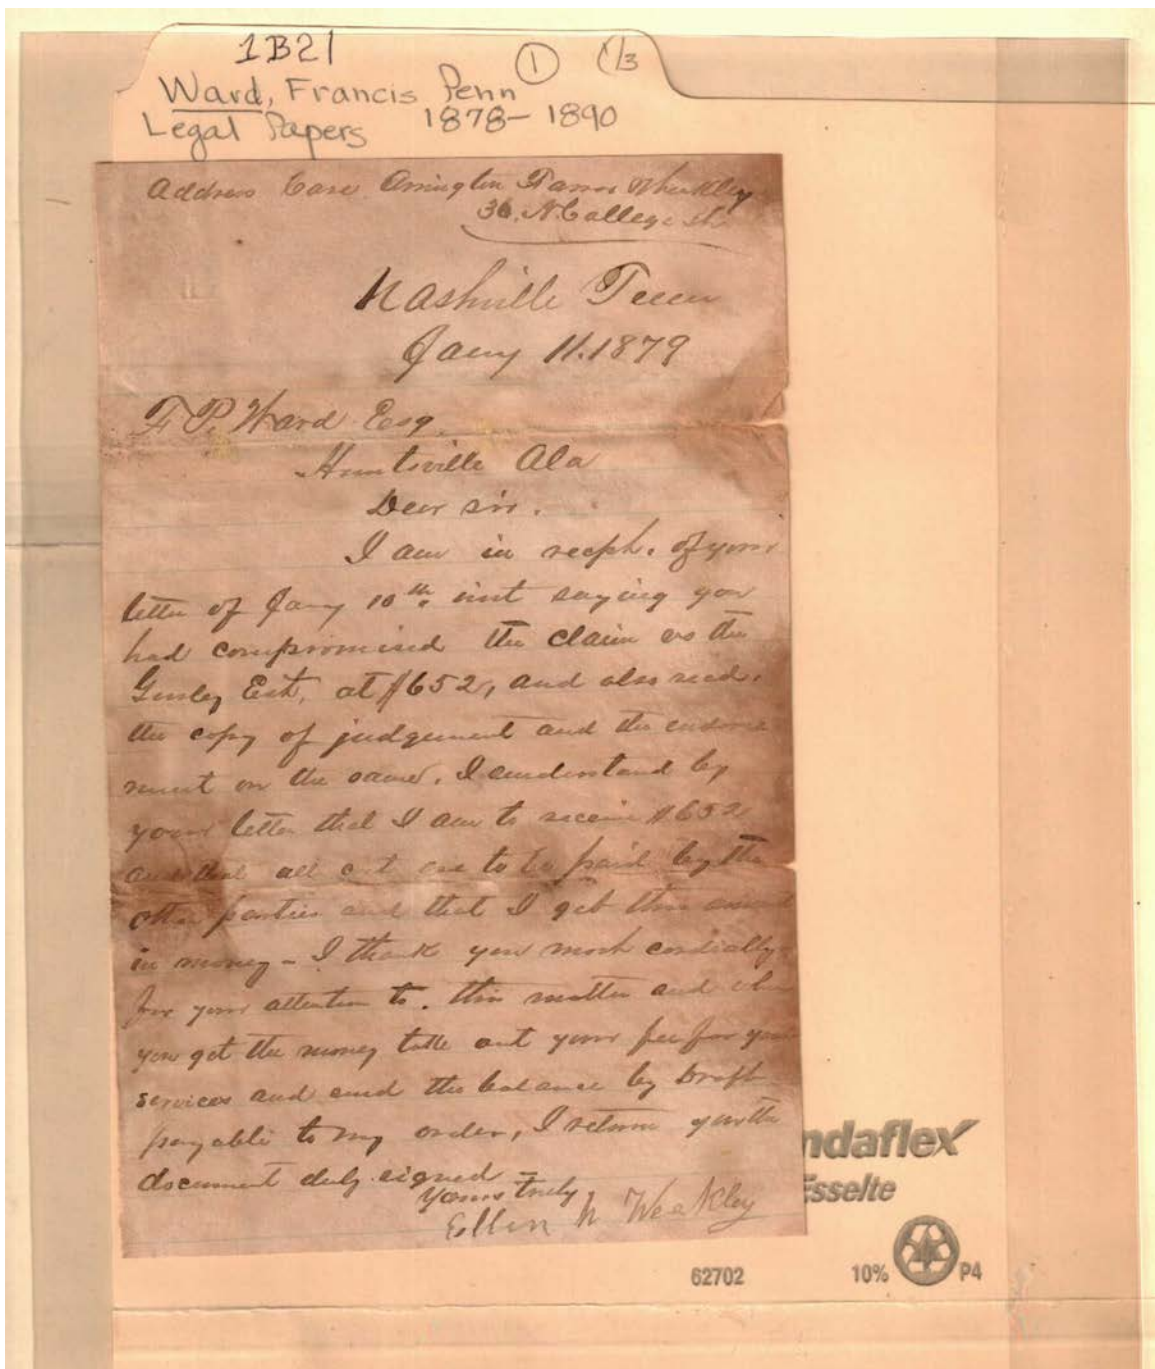 1B21 1 1/3
Ward, Francis Penn
Legal Papers 1878-1890
Address Care Arrington Weakley
36. N. College st
Nashville Tenn
Jany 11. 1879
F. P. Ward Esq.
Huntsville Ala
Dear sir.
I am in recpt. of your
letter of Jany 10th. inst saying you
had compromised the claim vs the
Est. at $652, and also recd.
the copy of judgement and the endorse
ment on the same. I understand by
your letter that I am to receive $652
and that all cost are to be paid by the
other parties and that I get this amount
in money - I thank you most cordially
for your attention to. this matter and when
you get the money take out your fee for your
services and send the balance by Draft
payable to my order, I return you the
document duly signed
Yours Truly
Ellen N Weakley
ndaflex
Esselte
62702 10% P4